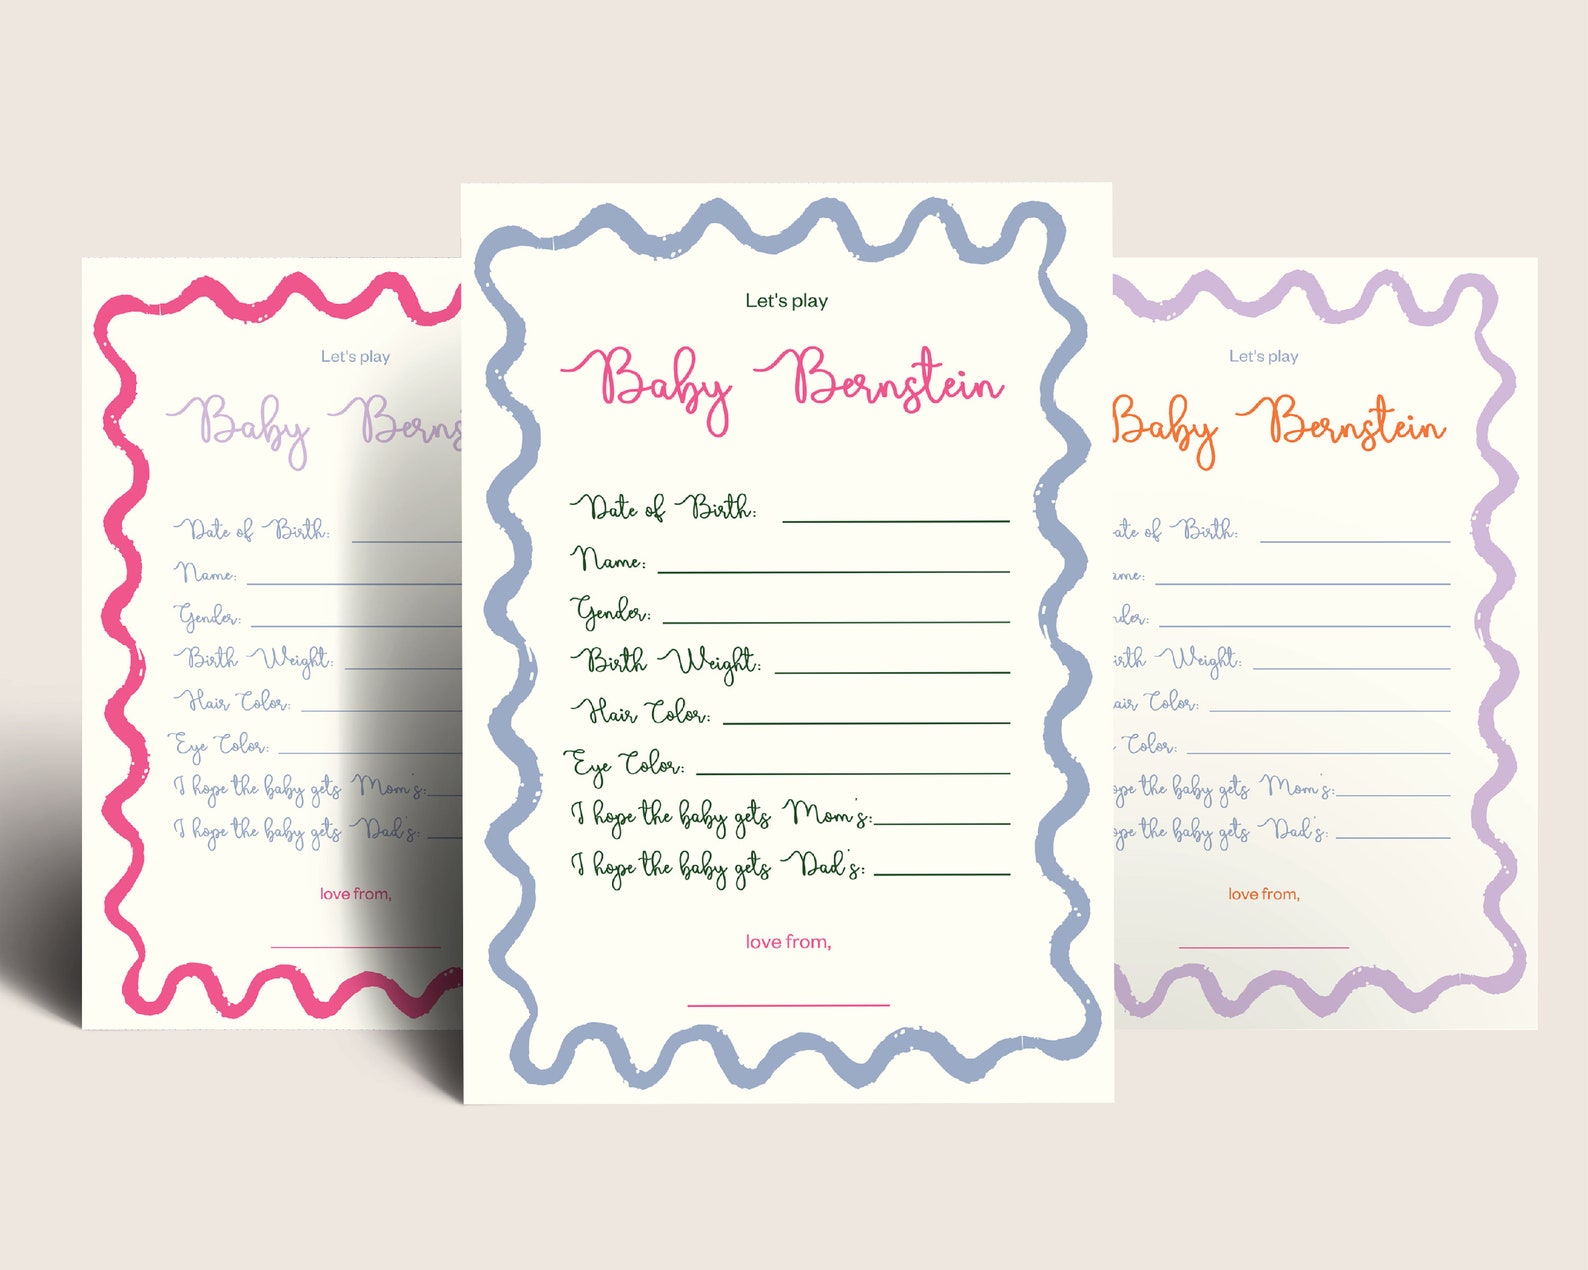 Let's play
Baby Berns
Date of Birth:
Name:
Gender:
Birth Weight:
Hair Color:
Eye Color:
I hope the baby gets Mom's:
I hope the baby gets Dad's:
love from,
Let's play
Baby Bernstein
Date of Birth:
Name:
Gender:
Birth Weight:
Hair Color:
Eye Color:
I hope the baby gets Mom's:
I hope the baby gets Dad's:
love from,
Let's play
Baby Bernstein
ate of Birth:
ame:
nder:
irth Weight:
air Color:
Color:
ope the baby gets Mom's:
ope the baby gets Dad's:
love from,